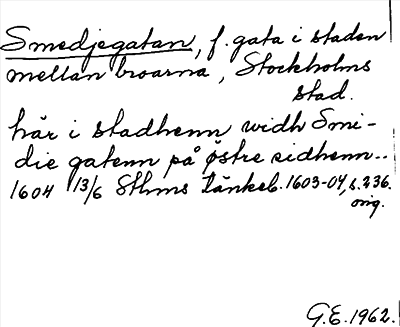 Smedjegatan, f. gata i staden
mellan broarna, Stockholms
stad.
här i stadhenn widh Smi-
die gatenn på östre sidhenn..
1604 13/6 Sthms tänkeb. 1603-04, s. 236.
orig.
G.E. 1962.